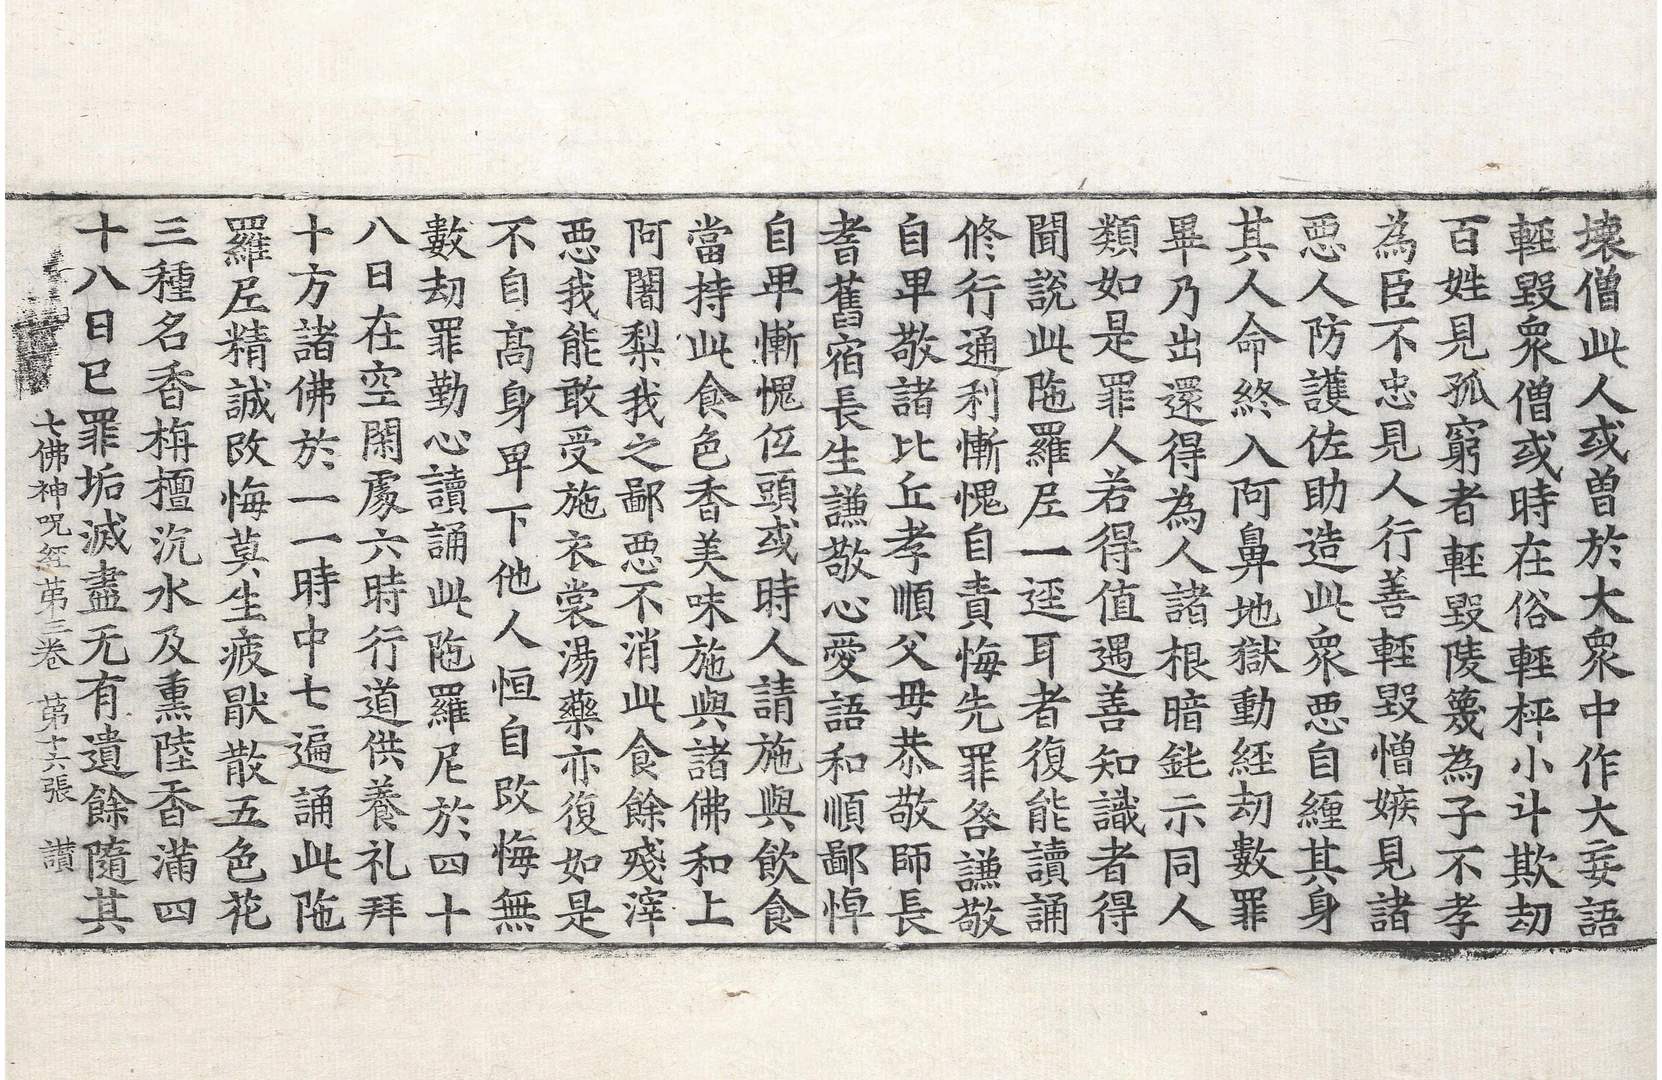 壞僧此人或曽於大衆中作大妄語
輕毀衆僧或時在俗輕秤小斗欺劫
百姓見孤窮者輕毀陵篾為子不孝
為臣不忠見人行善輕毀憎嫉見諸
惡人防護佐助造此衆惡自纏其身
其人命終入阿鼻地獄動經劫數罪
畢乃出還得為人諸根暗鈍示同人
類如是罪人若得值遇善知識者得
聞說此陁羅尼一逕耳者復能讀誦
修行通利慚愧自責悔先罪咎謙敬
自卑敬諸比丘孝順父母恭敬師長
耆舊宿長生謙敬心愛語和順鄙悼
自卑慚愧伍頭或時人請施與飲食
當持此食色香美味施與諸佛和上
阿闍梨我之鄙惡不消此食餘殘滓
惡我能敢受施衣裳湯藥亦復如是
不自髙身卑下他人恒自改悔無
數劫罪勤心讀誦此陁羅尼於四十
八日在空閑處六時行道供養礼拜
十方諸佛於一一時中七遍誦此陁
羅尼精誠改悔莫生疲猒散五色花
三種名香栴檀沉水及熏陸香滿四
十八日已罪垢滅盡无有遺餘隨其
七佛神呪經苐三卷　苐十六張　讃